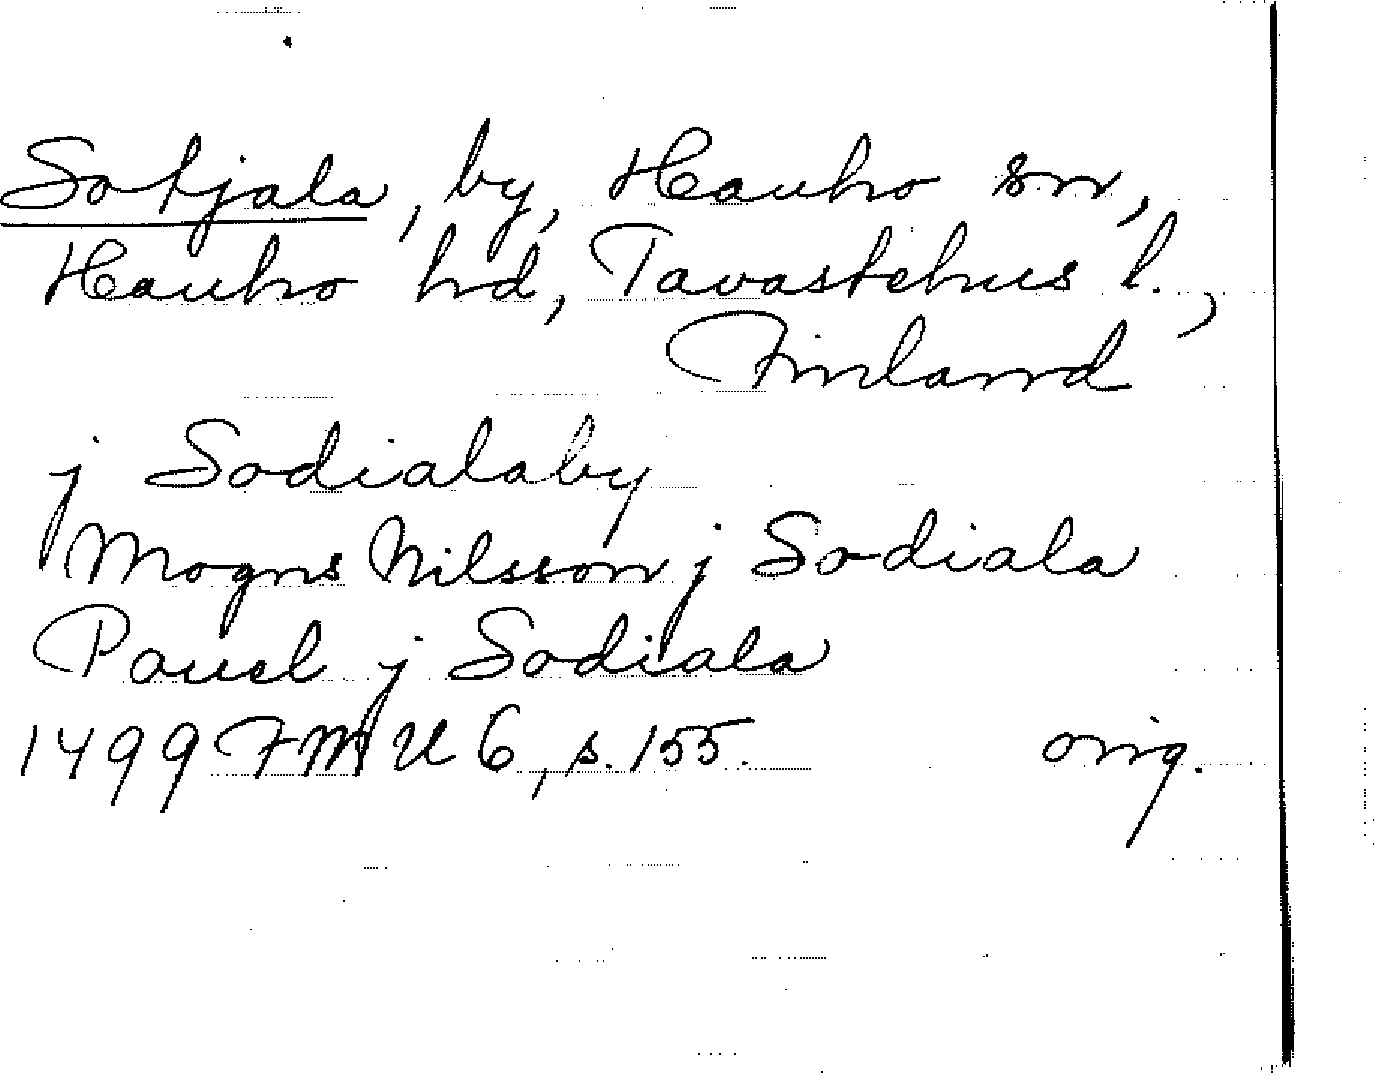 Sotjala, by, Hauho sn,
Hauho hd, Tavastehus l.,
Finland
j Sodialaby
Mogns Nilsson j Sodiala
Pauel j Sodiala
1499 FMU 6, s. 155. orig.